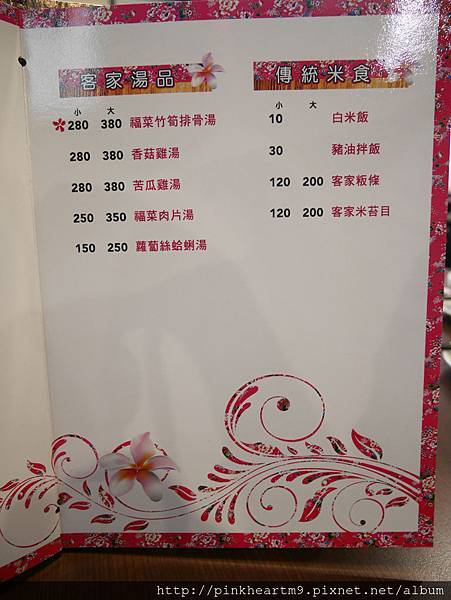 客家湯品
小 大
280 380 福菜竹筍排骨湯
280 380 香菇雞湯
280 380 苦瓜雞湯
250 350 福菜肉片湯
150 250 蘿蔔絲蛤蜊湯
傳統米食
小 大
10 白米飯
30 豬油拌飯
120 200 客家粄條
120 200 客家米苔目
http://pinkheartm9.pixnet.net/album